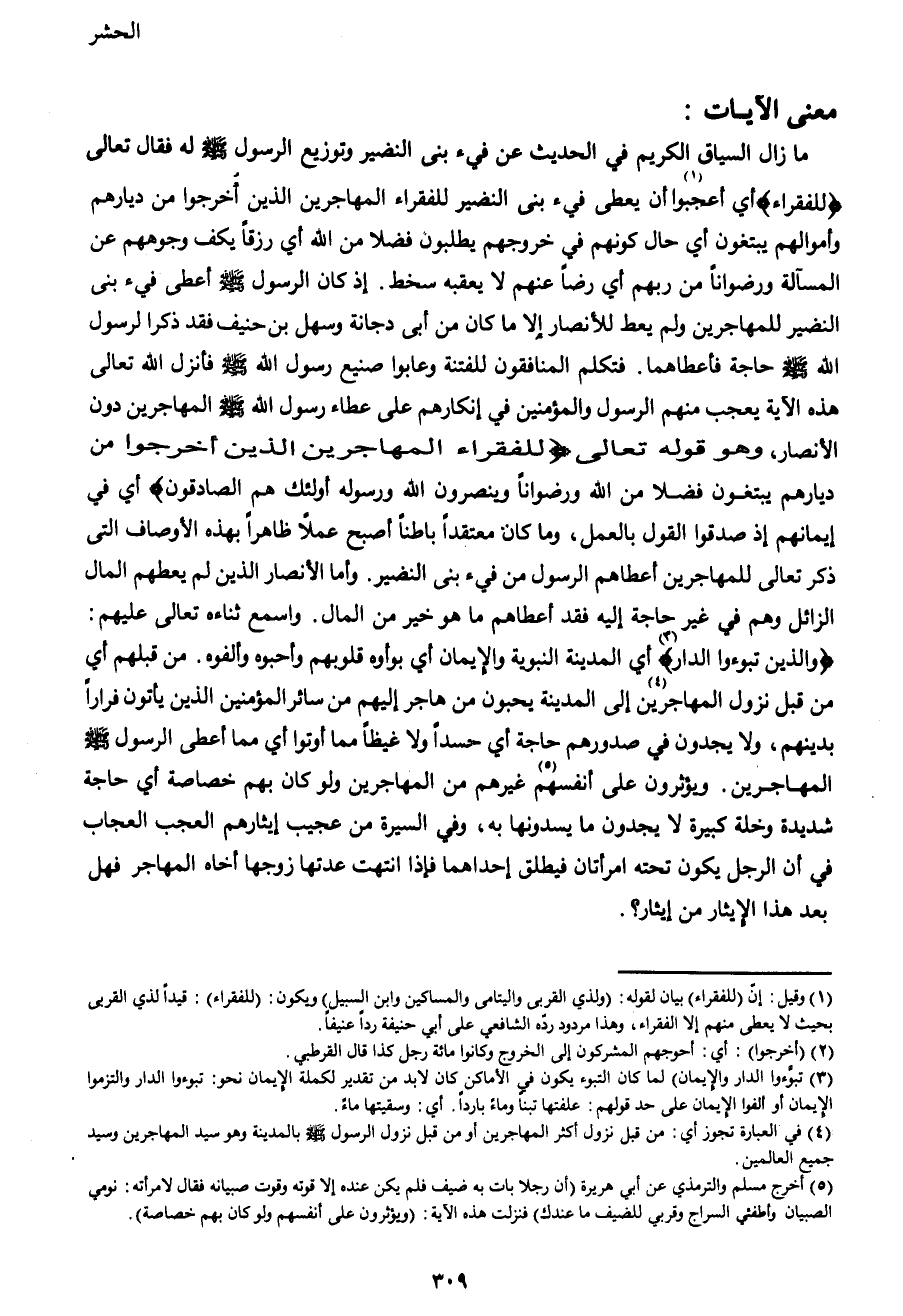 الحشر
معنى الآيـات :
ما زال السياق الكريم في الحديث عن فيء بنى النضير وتوزيع الرسول ﷺ له فقال تعالى
﴿للفقراء﴾ أي أعجبوا(١) أن يعطى فيء بنى النضير للفقراء المهاجرين الذين أُخرجوا من ديارهم
وأموالهم يبتغون أي حال كونهم في خروجهم يطلبون فضلا من الله أي رزقاً يكف وجوههم عن
المسألة ورضواناً من ربهم أي رضاً عنهم لا يعقبه سخط. إذ كان الرسول ﷺ أعطى فيء بنى
النضير للمهاجرين ولم يعط للأنصار إلا ما كان من أبى دجانة وسهل بن حنيف فقد ذكرا لرسول
الله ﷺ حاجة فأعطاهما. فتكلم المنافقون للفتنة وعابوا صنيع رسول الله ﷺ فأنزل الله تعالى
هذه الآية يعجب منهم الرسول والمؤمنين في إنكارهم على عطاء رسول الله ﷺ المهاجرين دون
الأنصار، وهو قوله تعالى ﴿للفقراء المهاجرين الذين أخرجوا من
ديارهم يبتغـون فضـلا من الله ورضواناً وينصرون الله ورسوله أولئك هم الصادقون﴾ أي في
إيمانهم إذ صدقوا القول بالعمل، وما كان معتقداً باطناً أصبح عملاً ظاهراً بهذه الأوصاف التى
ذكر تعالى للمهاجرين أعطاهم الرسول من فيء بنى النضير. وأما الأنصار الذين لم يعطهم المال
الزائل وهم في غير حاجة إليه فقد أعطاهم ما هو خير من المال. واسمع ثناءه تعالى عليهم:
﴿والذين تبوءوا الدار﴾(٣) أي المدينة النبوية والإيمان أي بوأوه قلوبهم وأحبوه وألفوه. من قبلهم أي
من قبل نزول المهاجرين(٤) إلى المدينة يحبون من هاجر إليهم من سائر المؤمنين الذين يأتون فراراً
بدينهم، ولا يجدون في صدورهم حاجة أي حسداً ولا غيظاً مما أوتوا أي مما أعطى الرسول ﷺ
المهـاجـرين. ويؤثرون على أنفسهم(٥) غيرهم من المهاجرين ولو كان بهم خصاصة أي حاجة
شديدة وخلة كبيرة لا يجدون ما يسدونها به، وفي السيرة من عجيب إيثارهم العجب العجاب
في أن الرجل يكون تحته امرأتان فيطلق إحداهما فإذا انتهت عدتها زوجها أخاه المهاجر فهل
بعد هذا الإيثار من إيثار؟.
(١) وقيل: إنّ (للفقراء) بيان لقوله: (ولذي القربى واليتامى والمساكين وابن السبيل) ويكون: (للفقراء) : قيداً لذي القربى
بحيث لا يعطى منهم إلا الفقراء، وهذا مردود ردّه الشافعي على أبي حنيفة رداً عنيفاً.
(٢) (أخرجوا) : أي: أحوجهم المشركون إلى الخروج وكانوا مائة رجل كذا قال القرطبي.
(٣) تبوَّءوا الدار والإيمان) لما كان التبوء يكون في الأماكن كان لابد من تقدير لكملة الإيمان نحو: تبوءوا الدار والتزموا
الإيمان أو ألفوا الإيمان على حد قولهم: علفتها تبناً وماءً بارداً. أي: وسقيتها ماءً.
(٤) في العبارة تجوز أي: من قبل نزول أكثر المهاجرين أو من قبل نزول الرسول ﷺ بالمدينة وهو سيد المهاجرين وسيد
جميع العالمين.
(٥) أخرج مسلم والترمذي عن أبي هريرة (أن رجلا بات به ضيف فلم يكن عنده إلا قوته وقوت صبيانه فقال لامرأته: نومي
الصبيان وأطفئي السراج وقربي للضيف ما عندك) فنزلت هذه الآية: (ويؤثرون على أنفسهم ولو كان بهم خصاصة).
٣٠٩